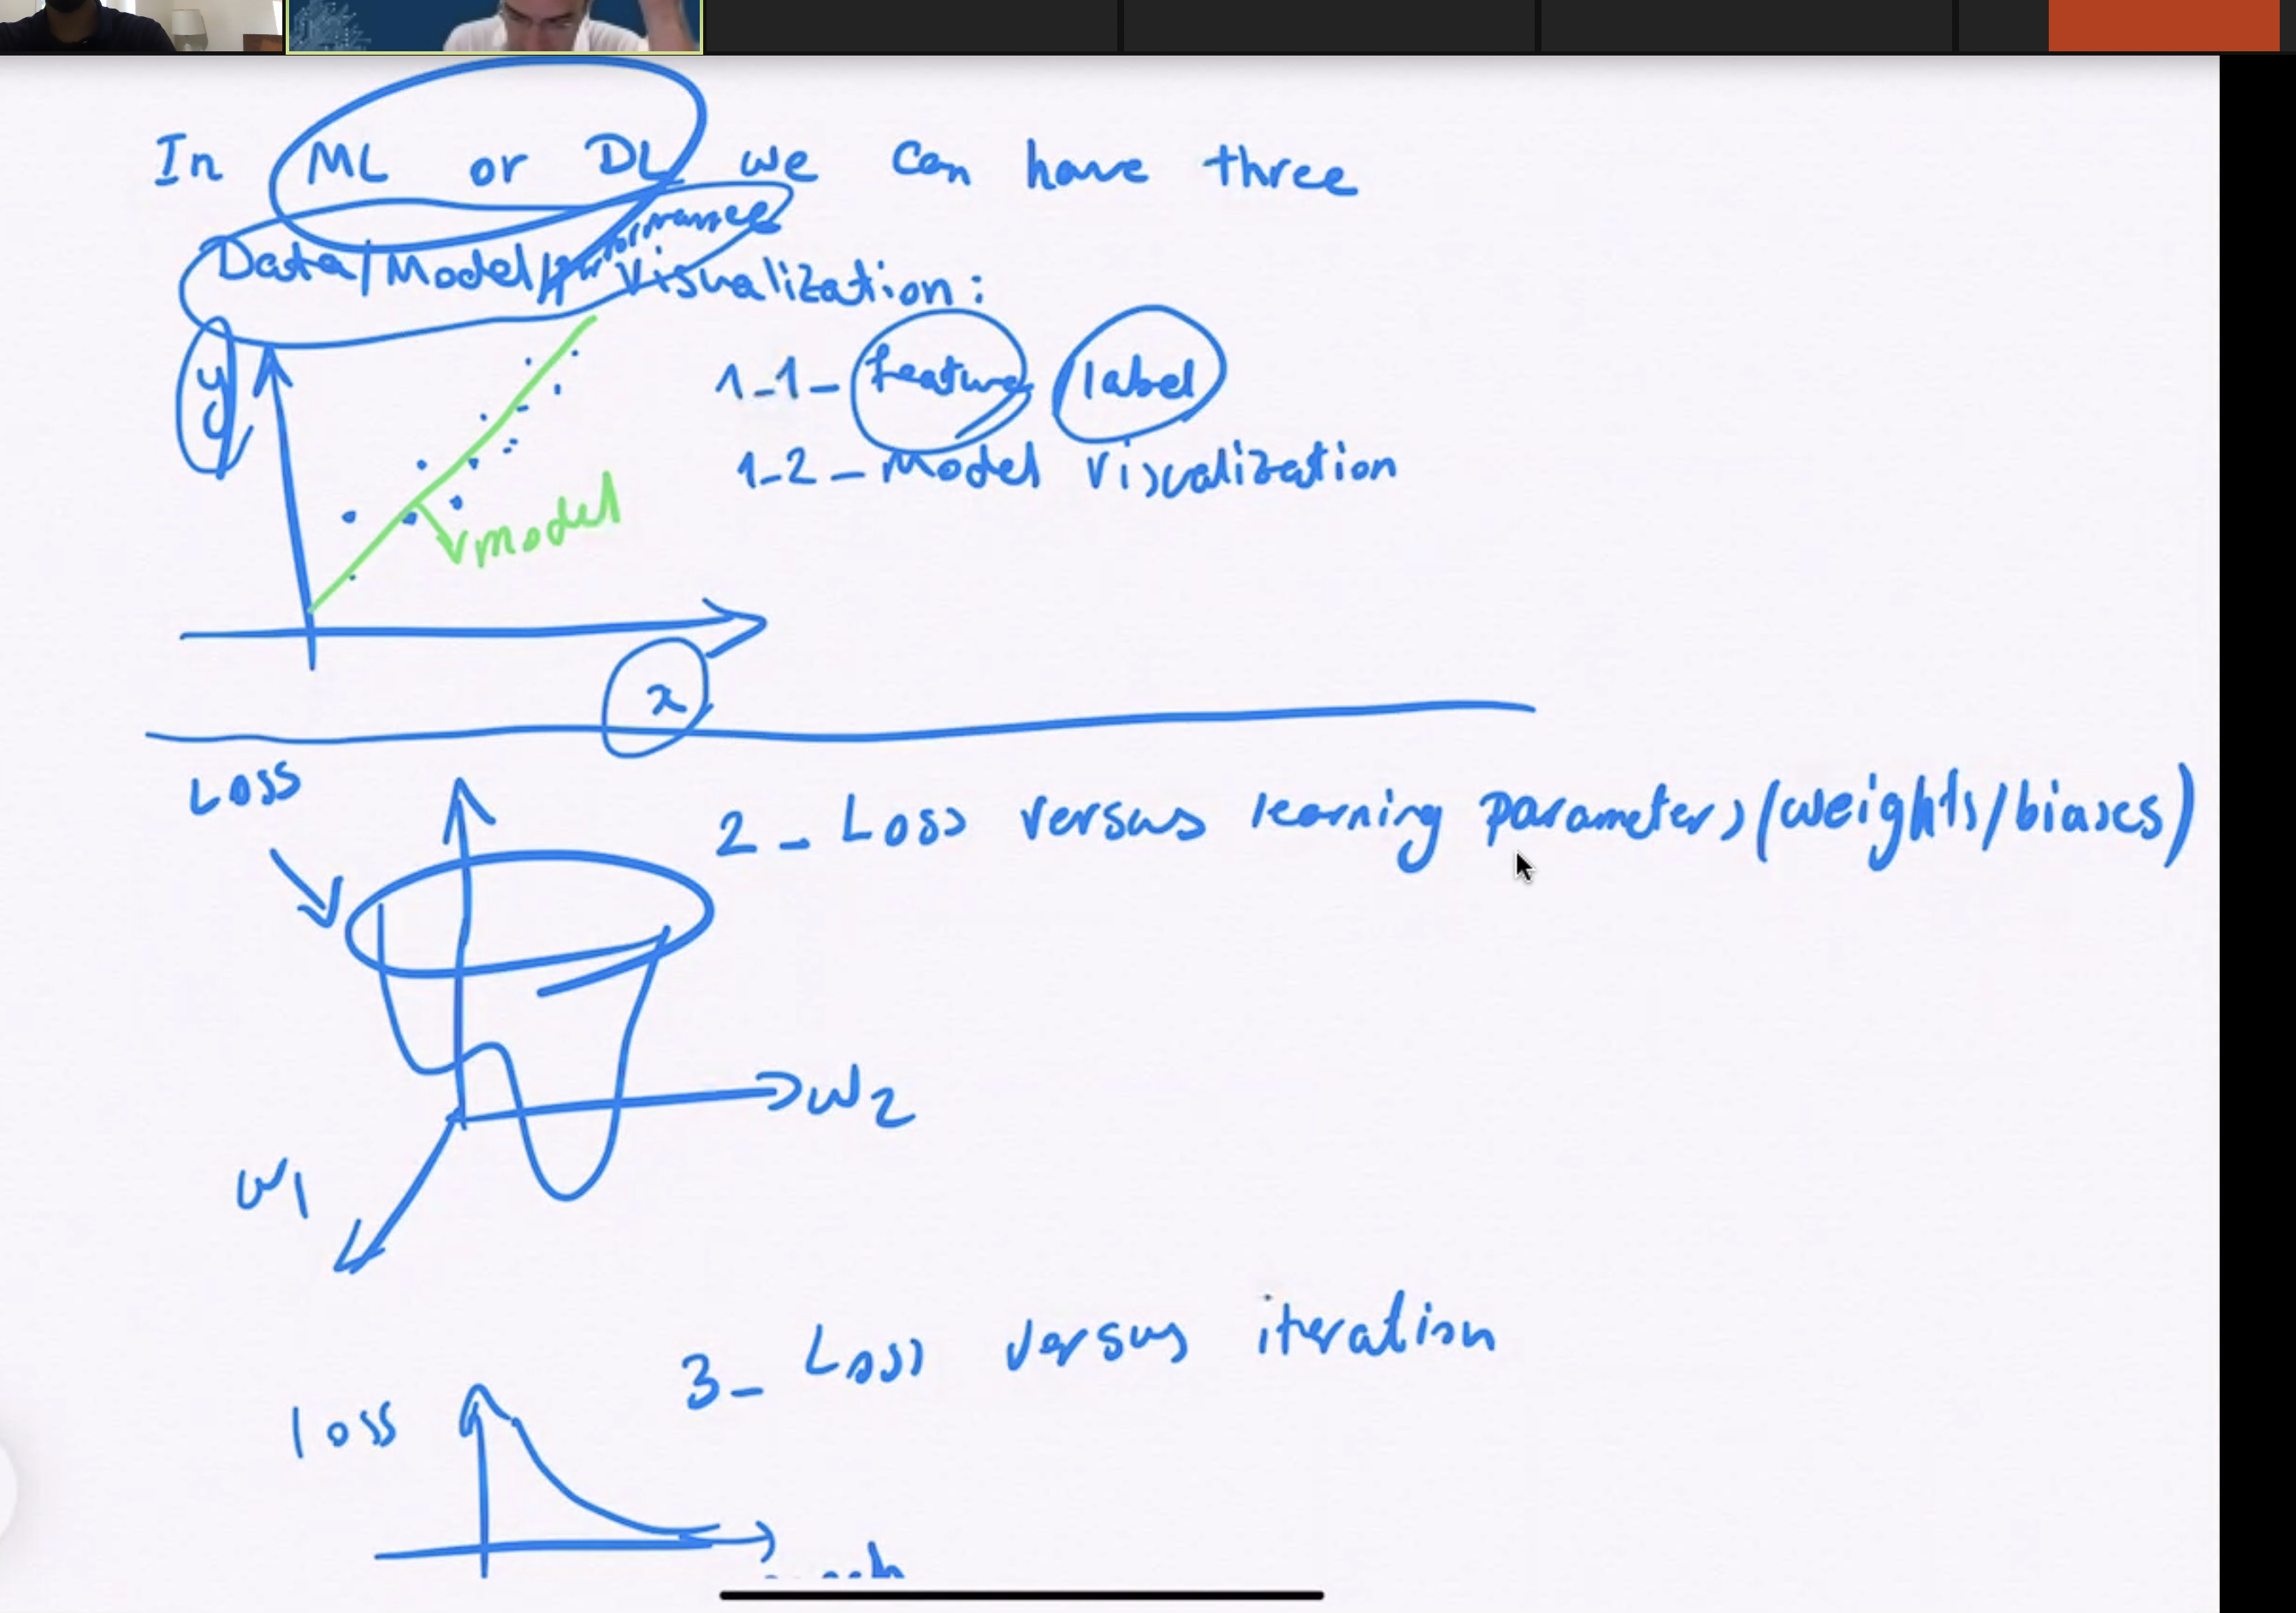 In ML or DL we can have three
Data/Model/performance Visualization:
y
1-1- feature label
1-2- Model visualization
model
x
Loss
2- Loss versus learning parameters (weights/biases)
w2
w1
3- Loss versus iteration
loss